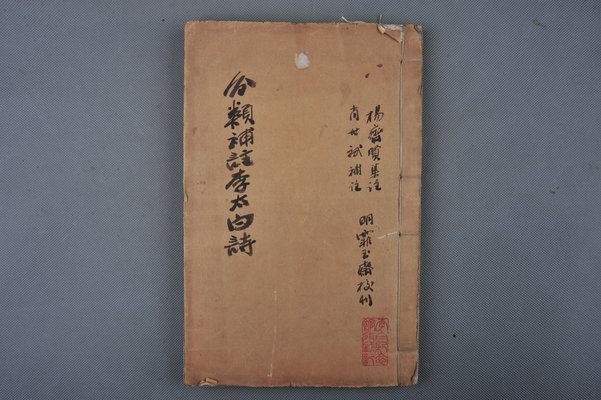 楊齊賢集註
肖補註
明霏玉齋校刊
分類補註李太白詩